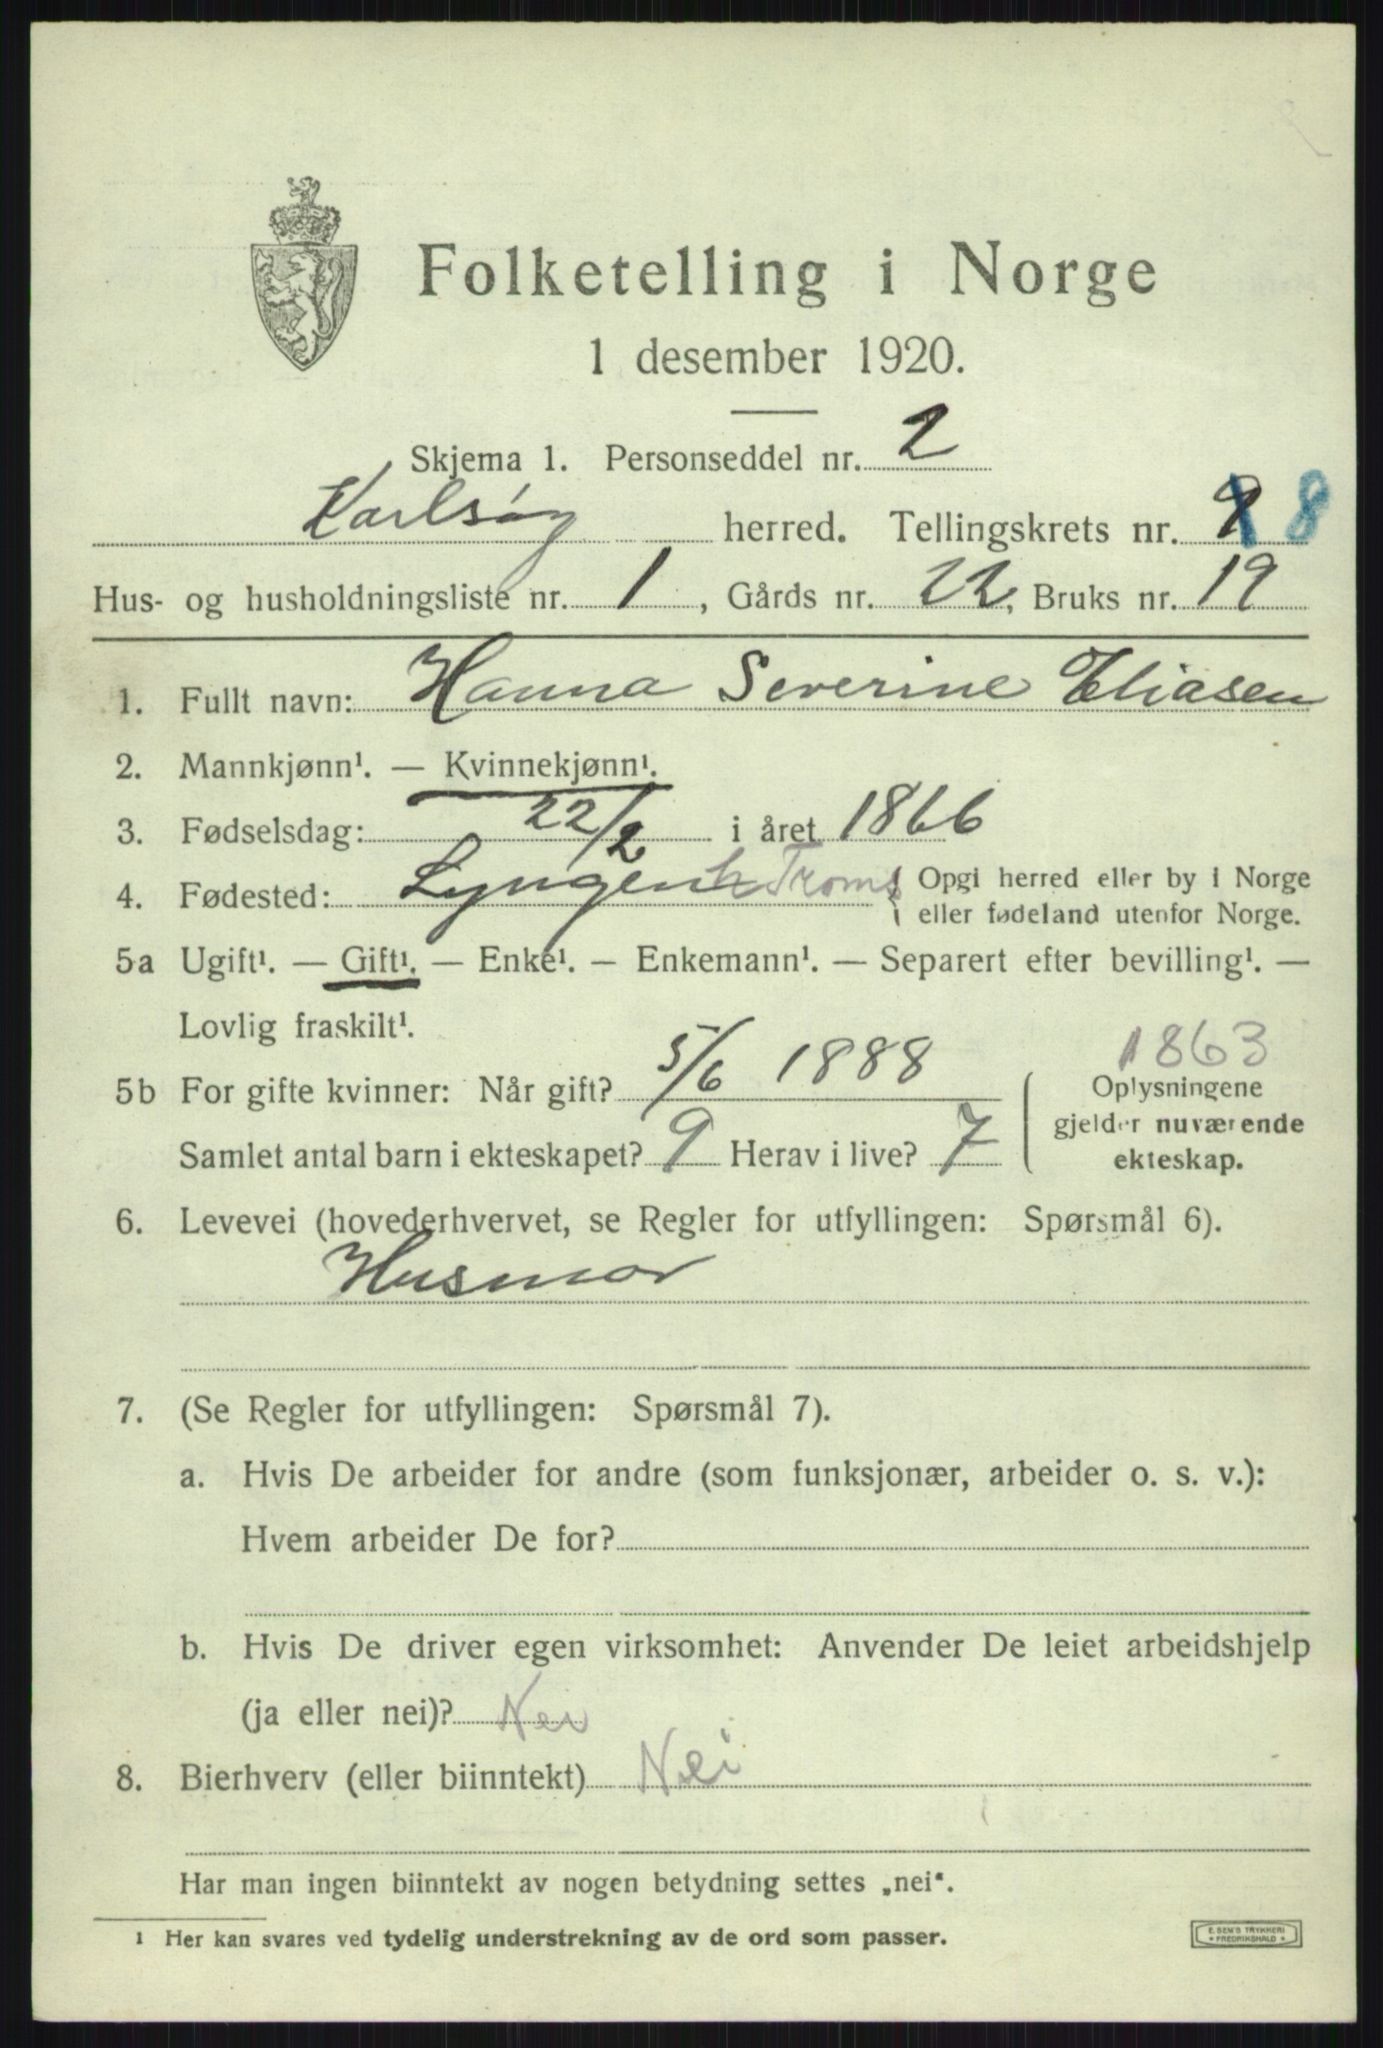 Folketelling i Norge
1 desember 1920.
Skjema 1. Personseddel nr. 2
Karlsøy herred. Tellingskrets nr. 9 8
Hus- og husholdningsliste nr. 1, Gårds nr. 22, Bruks nr. 19
1. Fullt navn: Hanna Severine Eliasen
2. Mannkjønn¹. — Kvinnekjønn¹.
3. Fødselsdag: 22/2 i året 1866
4. Fødested: Lyngen Troms { Opgi herred eller by i Norge
eller fødeland utenfor Norge.
5a Ugift¹. — Gift¹. — Enke¹. — Enkemann¹. — Separert efter bevilling¹. —
Lovlig fraskilt¹.
1863
5b For gifte kvinner: Når gift? 5/6 1888
Samlet antal barn i ekteskapet? 9 Herav i live? 7
Oplysningene
gjelder nuværende
ekteskap.
6. Levevei (hovederhvervet, se Regler for utfyllingen: Spørsmål 6).
Husmor
7. (Se Regler for utfyllingen: Spørsmål 7).
a. Hvis De arbeider for andre (som funksjonær, arbeider o. s. v.):
Hvem arbeider De for?
b. Hvis De driver egen virksomhet: Anvender De leiet arbeidshjelp
(ja eller nei)? Nei
8. Bierhverv (eller biinntekt) Nei
Har man ingen biinntekt av nogen betydning settes „nei“.
1 Her kan svares ved tydelig understrekning av de ord som passer.
E. SEM'S TRYKKERI
* FREDRIKSHALD *